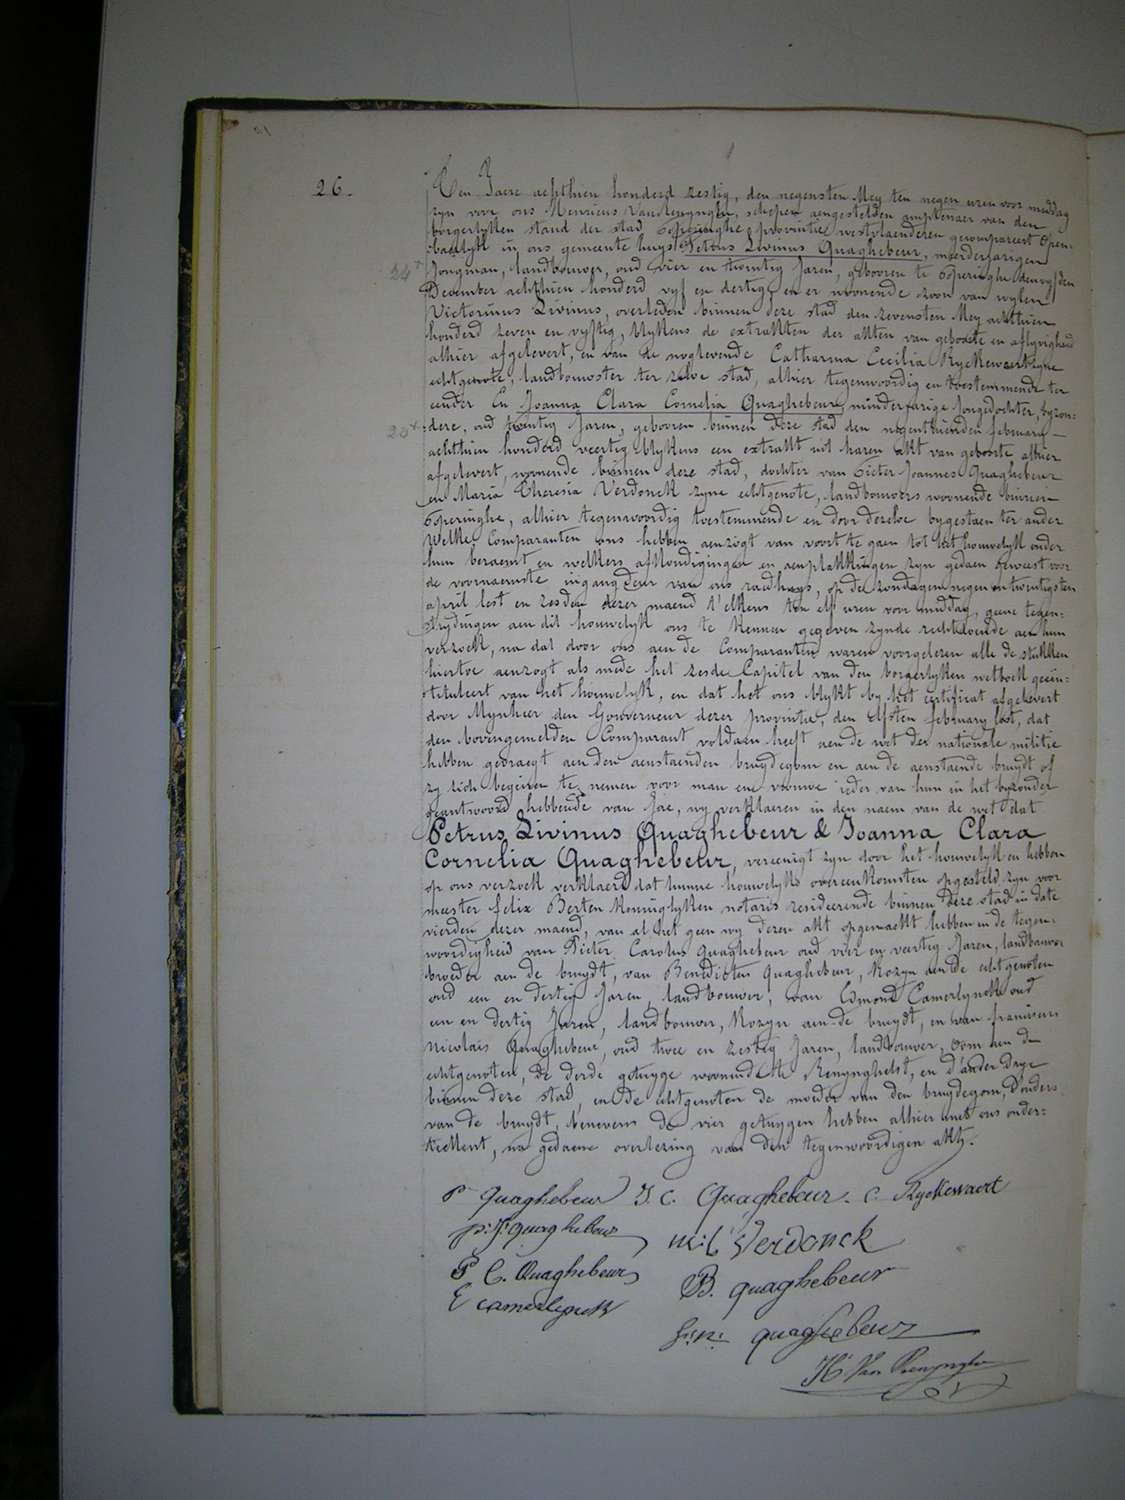 26.
Ten Jaere achthien honderd zestig, den negensten Mey ten negen uren voor middag
zyn voor ons Henricus Vanrenynghe, schepen aengestelden amptenaer van den
borgerlyken stand der stad Poperinghe provintie westvlaenderen gecompareert Open-
baerlyk in ons gemeente huys Petrus Livinus Quaghebeur, meerderjarigen
Jongman, landbouwer, oud vier en twintig Jaren, gebooren te Poperinghe den vyfden
24+
December achthien honderd vyf en dertig en er woonende zoon van wylen
Victorinus Livinus, overleden binnen deze stad den zevensten Mey achthien
honderd zeven en vyftig, blykens de extrakten der akten van geboorte en aflyvigheid
alhier afgelevert, en van de noglevende Catharina Cecilia Ryckewaert zyne
echtgenote, landbouwster ter zelve stad, alhier tegenwoordig en toestemmende ter
eender En Joanna Clara Cornelia Quaghebeur minderjarige Jongedochter, byzon-
dere, oud twintig Jaren, gebooren binnen deze stad den negenthienden february
20+
achthien honderd veertig blykens een extrakt uit haren akt van geboorte alhier
afgelevert, woonende binnen deze stad, dochter van Pieter Joannes Quaghebeur
en Maria Theresia Verdonck zyne echtgenote, landbouwers woonende binnen
Poperinghe, alhier tegenwoordig toestemmende en door dezelve bygestaen ter ander
Welke Comparanten ons hebben aenzogt van voort te gaen tot het houwelyk onder
hun beraemt en welkers afkondigingen en aenplakkingen zyn gedaen geweest voor
de voornaemste ingang deur van ons raedhuys, op de zondagen negen en twintigsten
april lest en zesden dezer maend t'elkens ten elf uren voor middag, geene tegen-
strydingen aen dit houwelyk ons te kennen gegeven zynde rechtdoende aen hun
verzoek, na dat door ons aen de Comparanten waren voorgelezen alle de stukken
hiertoe aenzogt als mede het zesde Capitel van den borgerlyken wetboek geïn-
tituleert van het houwelyk, en dat het ons blykt by het certificat afgelevert
door Mynheer den Gouverneur dezer provintie, den elfsten february lest, dat
den bovengemelden Comparant voldaen heeft aen de wet der nationale militie
hebben gevraegt aen den aenstaenden bruydegom en aen de aenstaende bruydt of
zy zich begeiren te nemen voor man en vrouwe ieder van hun in het byzonder
geantwoord hebbende van Jae, wy verklaeren in den naem van de wet dat
Petrus Livinus Quaghebeur & Joanna Clara
Cornelia Quaghebeur, vereenigt zyn door het houwelyk en hebben
op ons verzoek verklaerd dat hunne houwelyks overeenkomsten opgesteld zyn voor
meester felix Berten koninglyken notaris resideerende binnen deze stad in date
vierden dezer maend, van al het geen wy dezen akt opgemaekt hebben in de tegen-
woordigheid van Pieter Carolus Quaghebeur oud vier en veertig Jaren, landbouwer
broeder aen de bruydt, van Benedictus Quaghebeur, Kozyn aen de echtgenoten
oud een en dertig Jaren, landbouwer, van Edmond Camerlynck oud
een en dertig Jaren, landbouwer, Kozyn aen de bruydt, en van franciscus
Nicolais Quaghebeur, oud twee en zestig Jaren, landbouwer, oom aen de
echtgenoten, de derde getuyge woonende te Renynghelst, en d'ander drye
binnen deze stad, en de echtgenoten de moeder van den bruydegom, d'ouders
van de bruydt, benevens de vier getuygen hebben alhier met ons onder-
teekent, na gedaene overlezing van den tegenwoordigen akt.
P Quaghebeur J. C. Quaghebeur. C. Ryckewaert
p. J. Quaghebeur m: t Verdonck
P C. Quaghebeur B. quaghebeur
E camerlynck
fr: n: quaghebeur
H. Van Renynghe